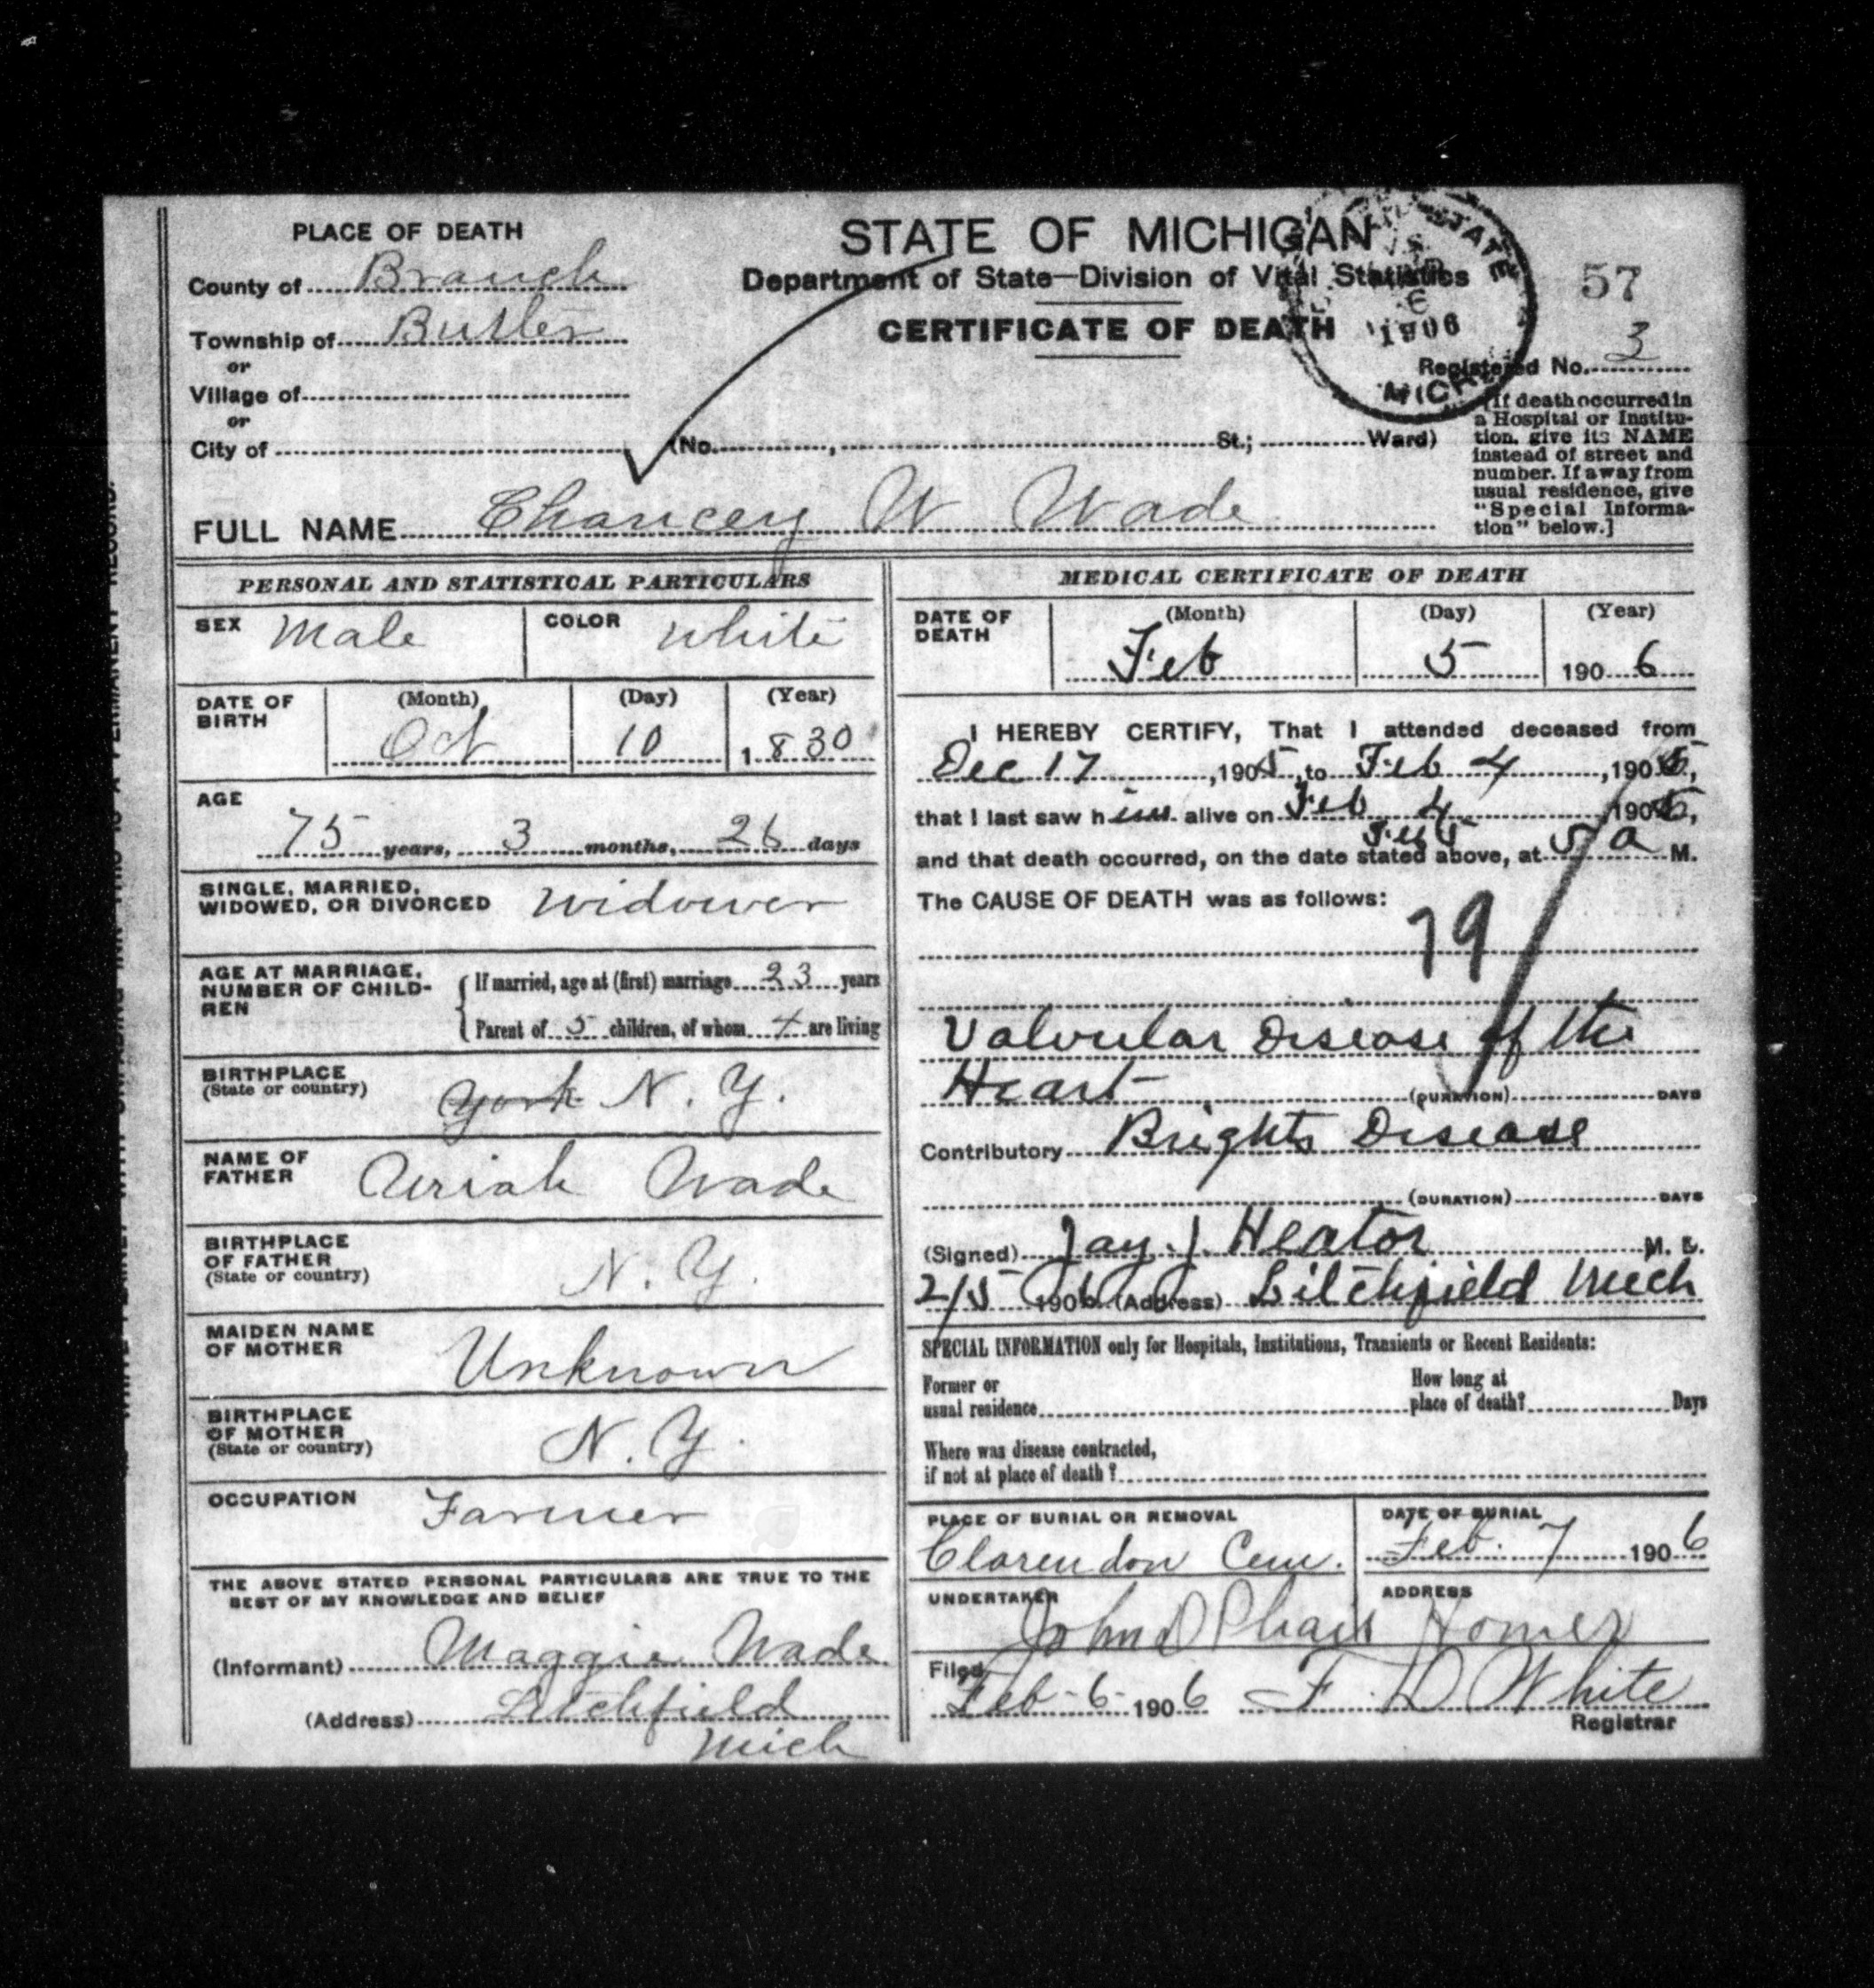 PLACE OF DEATH
County of Branch
Township of Butler
or
Village of
or
City of
STATE OF MICHIGAN
Department of State—Division of Vital Statistics
CERTIFICATE OF DEATH
STATE
6
1906
MICH.
57
Registered No. 3
(No. , St.; Ward)
[If death occurred in
a Hospital or Institu-
tion, give its NAME
instead of street and
number. If away from
usual residence, give
"Special Informa-
tion" below.]
FULL NAME Chancey W Wade
PERSONAL AND STATISTICAL PARTICULARS
SEX Male COLOR White
DATE OF BIRTH (Month) (Day) (Year)
Oct 10 1830
AGE
75 years, 3 months, 26 days
SINGLE, MARRIED,
WIDOWED, OR DIVORCED Widower
AGE AT MARRIAGE,
NUMBER OF CHILD-
REN
If married, age at (first) marriage 23 years
Parent of 5 children, of whom 4 are living
BIRTHPLACE
(State or country) York N. Y.
NAME OF
FATHER Uriah Wade
BIRTHPLACE
OF FATHER
(State or country) N. Y.
MAIDEN NAME
OF MOTHER Unknown
BIRTHPLACE
OF MOTHER
(State or country) N. Y.
OCCUPATION Farmer
THE ABOVE STATED PERSONAL PARTICULARS ARE TRUE TO THE
BEST OF MY KNOWLEDGE AND BELIEF
(Informant) Maggie Wade
(Address) Litchfield
Mich
MEDICAL CERTIFICATE OF DEATH
DATE OF DEATH (Month) (Day) (Year)
Feb 5 1906
I HEREBY CERTIFY, That I attended deceased from
Dec 17, 1905, to Feb 4, 1906,
that I last saw him alive on Feb 4, 1906,
Feb 5
and that death occurred, on the date stated above, at 5 a M.
The CAUSE OF DEATH was as follows:
79
Valvular Disease of the
Heart (DURATION) DAYS
Contributory Brights Disease
(DURATION) DAYS
(Signed) Jay J. Heator M. D.
2/5 1906 (Address) Litchfield Mich
SPECIAL INFORMATION only for Hospitals, Institutions, Transients or Recent Residents:
Former or
usual residence
How long at
place of death? Days
Where was disease contracted,
if not at place of death?
PLACE OF BURIAL OR REMOVAL
Clarendon Cem.
DATE OF BURIAL
Feb. 7 1906
UNDERTAKER
John D
ADDRESS
Homer
Filed
Feb-6-1906 F. D White
Registrar